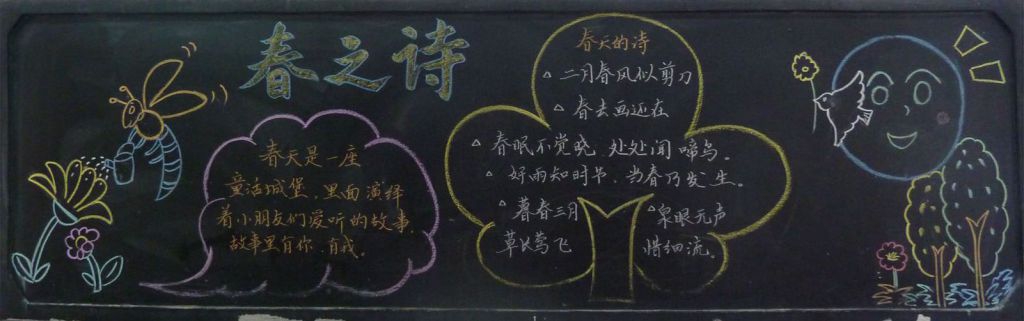 春之诗
春天是一座
童话城堡，里面演绎
着小朋友们爱听的故事，
故事里有你，有我。
春天的诗
二月春风似剪刀
春去画还在
春眠不觉晓，处处闻啼鸟。
好雨知时节，当春乃发生。
暮春三月
草长莺飞
泉眼无声
惜细流。